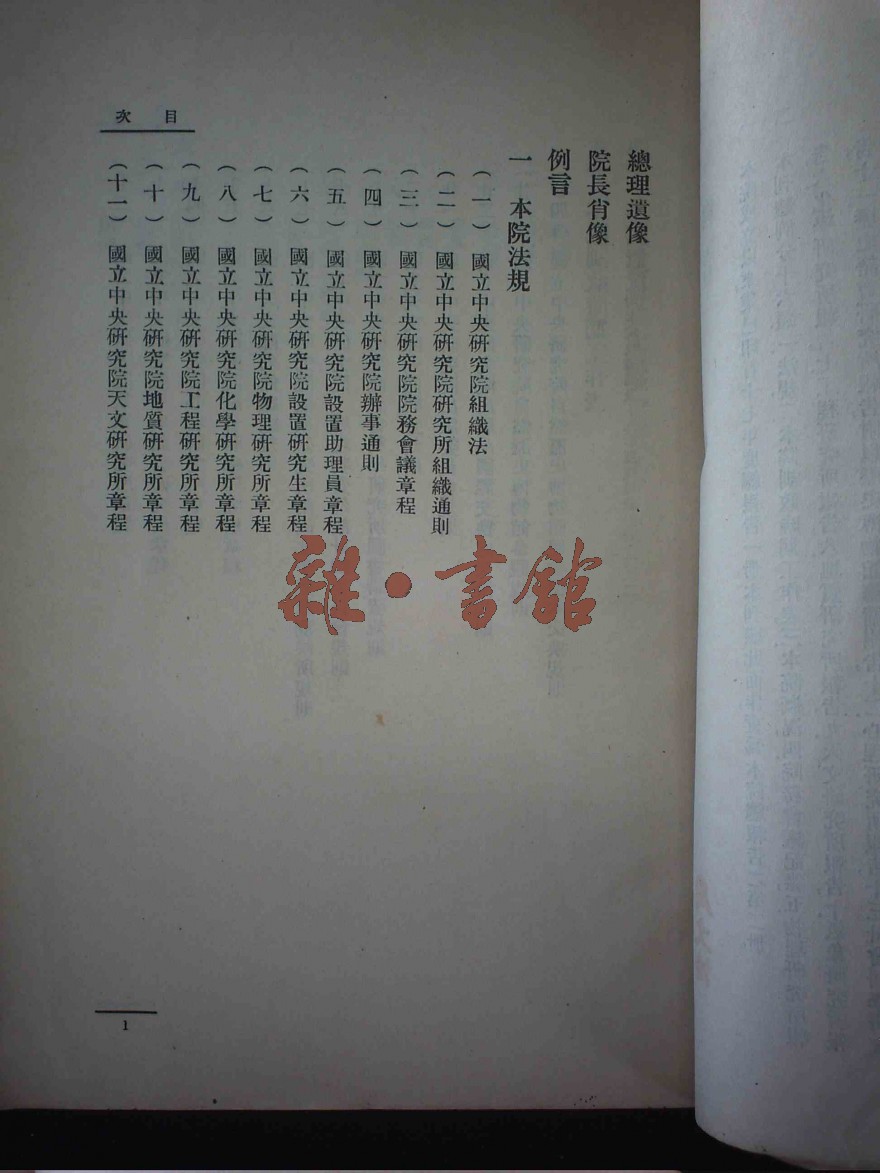 目次
總理遺像
院長肖像
例言
一 本院法規
（一） 國立中央研究院組織法
（二） 國立中央研究院研究所組織通則
（三） 國立中央研究院院務會議章程
（四） 國立中央研究院辦事通則
（五） 國立中央研究院設置助理員章程
（六） 國立中央研究院設置研究生章程
（七） 國立中央研究院物理研究所章程
（八） 國立中央研究院化學研究所章程
（九） 國立中央研究院工程研究所章程
（十） 國立中央研究院地質研究所章程
（十一） 國立中央研究院天文研究所章程
雜·書館
1